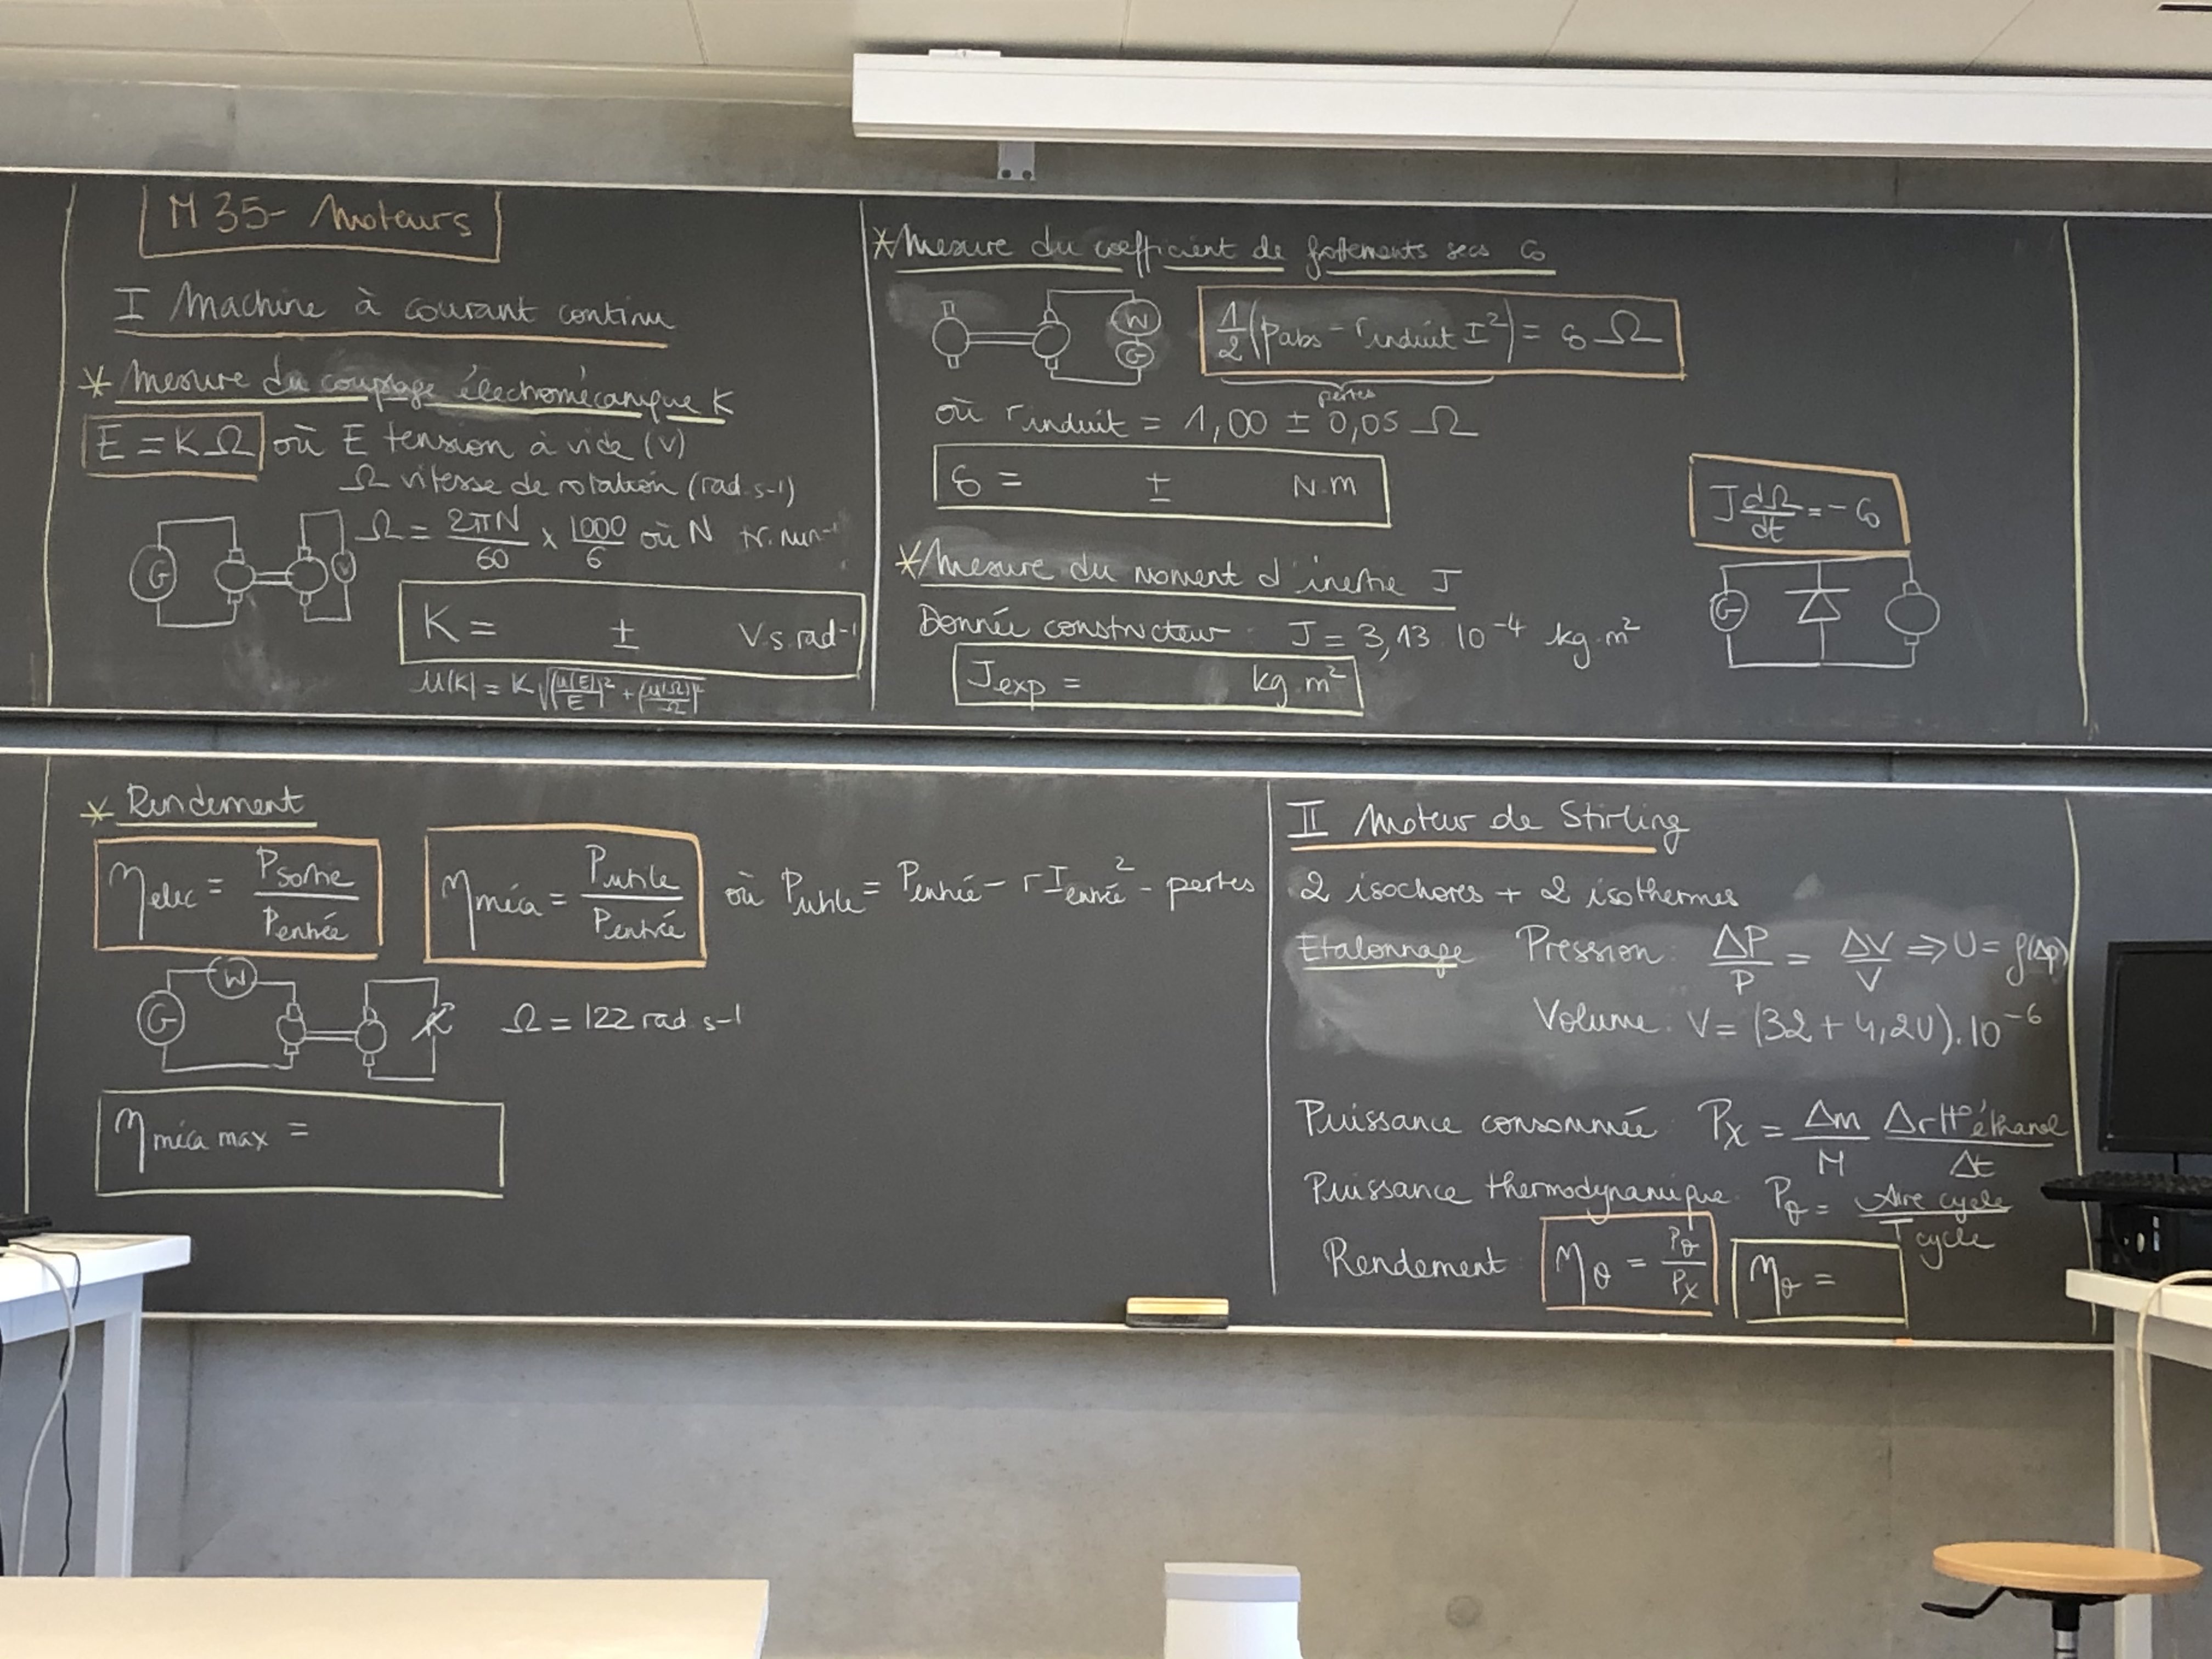 M35- Moteurs
I Machine à courant continu
* Mesure du couplage électromécanique K
E = KΩ où E tension à vide (V)
Ω vitesse de rotation (rad.s-1)
Ω = 2πN/60 × 1000/6 où N tr.min⁻¹
G V
K = ± V.s.rad⁻¹
u(K) = K √((u(E)/E)² + (u(Ω)/Ω)²)
* Mesure du coefficient de frottements secs
W
G
1/2 (Pabs - r induit I²) = Ω
pertes
où r induit = 1,00 ± 0,05 Ω
= ± N.m
* Mesure du moment d'inertie J
Donnée constructeur J = 3,13.10⁻⁴ kg.m²
J exp = kg.m²
J dΩ/dt = -
G
* Rendement
η elec = Psortie/Pentrée
η méca = Putile/Pentrée où Putile = Pentrée - r I entrée² - pertes
G W R Ω = 122 rad.s-1
η méca max =
II Moteur de Stirling
2 isochores + 2 isothermes
Etalonnage Pression: ΔP/P = ΔV/V ⇒ U = f(Δp)
Volume: V = (32 + 4,2U).10⁻⁶
Puissance consommée Px = Δm/M ΔrH°éthanol/Δt
Puissance thermodynamique Pθ = Aire cycle/T cycle
Rendement ηθ = Pθ/Px ηθ =